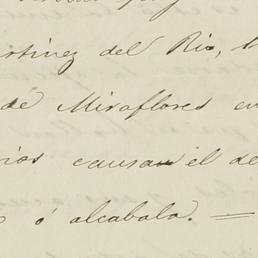 rtinez del Rio,
de Miraflores en
rios causan el de
ó alcabala. =